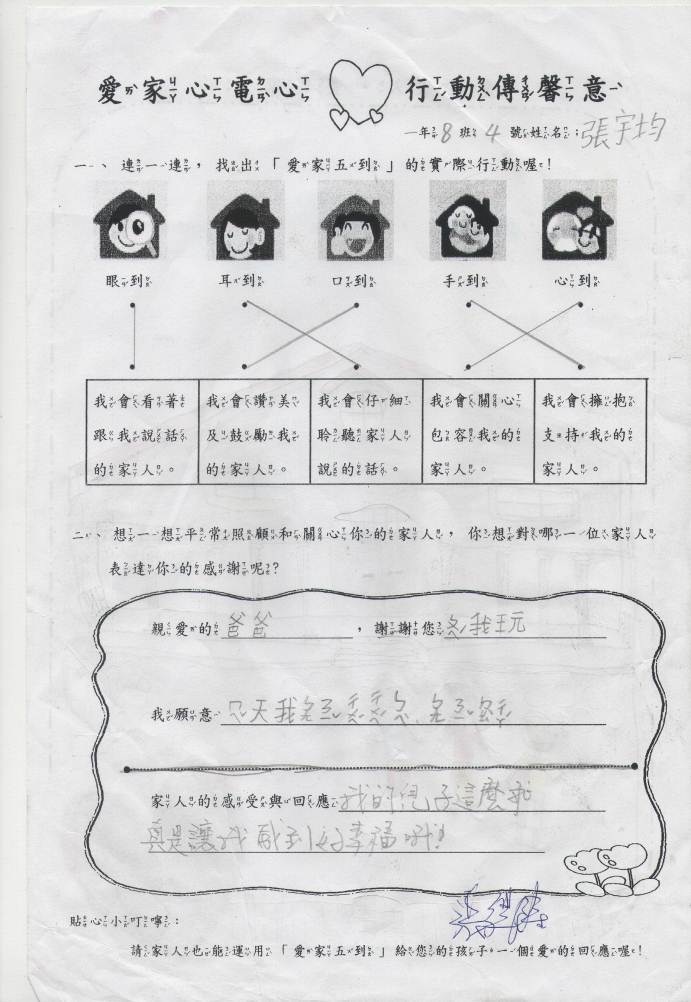 愛家心電心 行動傳馨意
一年8班4號姓名:張宇均
一、連一連，找出「愛家五到」的實際行動喔!
眼到 耳到 口到 手到 心到
我會看著跟我說話的家人。
我會讚美及鼓勵我的家人。
我會仔細聆聽家人說的話。
我會關心包容我的家人。
我會擁抱支持我的家人。
二、想一想平常照顧和關心你的家人，你想對哪一位家人
表達你的感謝呢?
親愛的爸爸，謝謝您 我玩
我願意 天我
家人的感受與回應 我的兒子這麼
真是讓我感到好幸福哦!
貼心小叮嚀:
請家人也能運用「愛家五到」給您的孩子一個愛的回應喔!